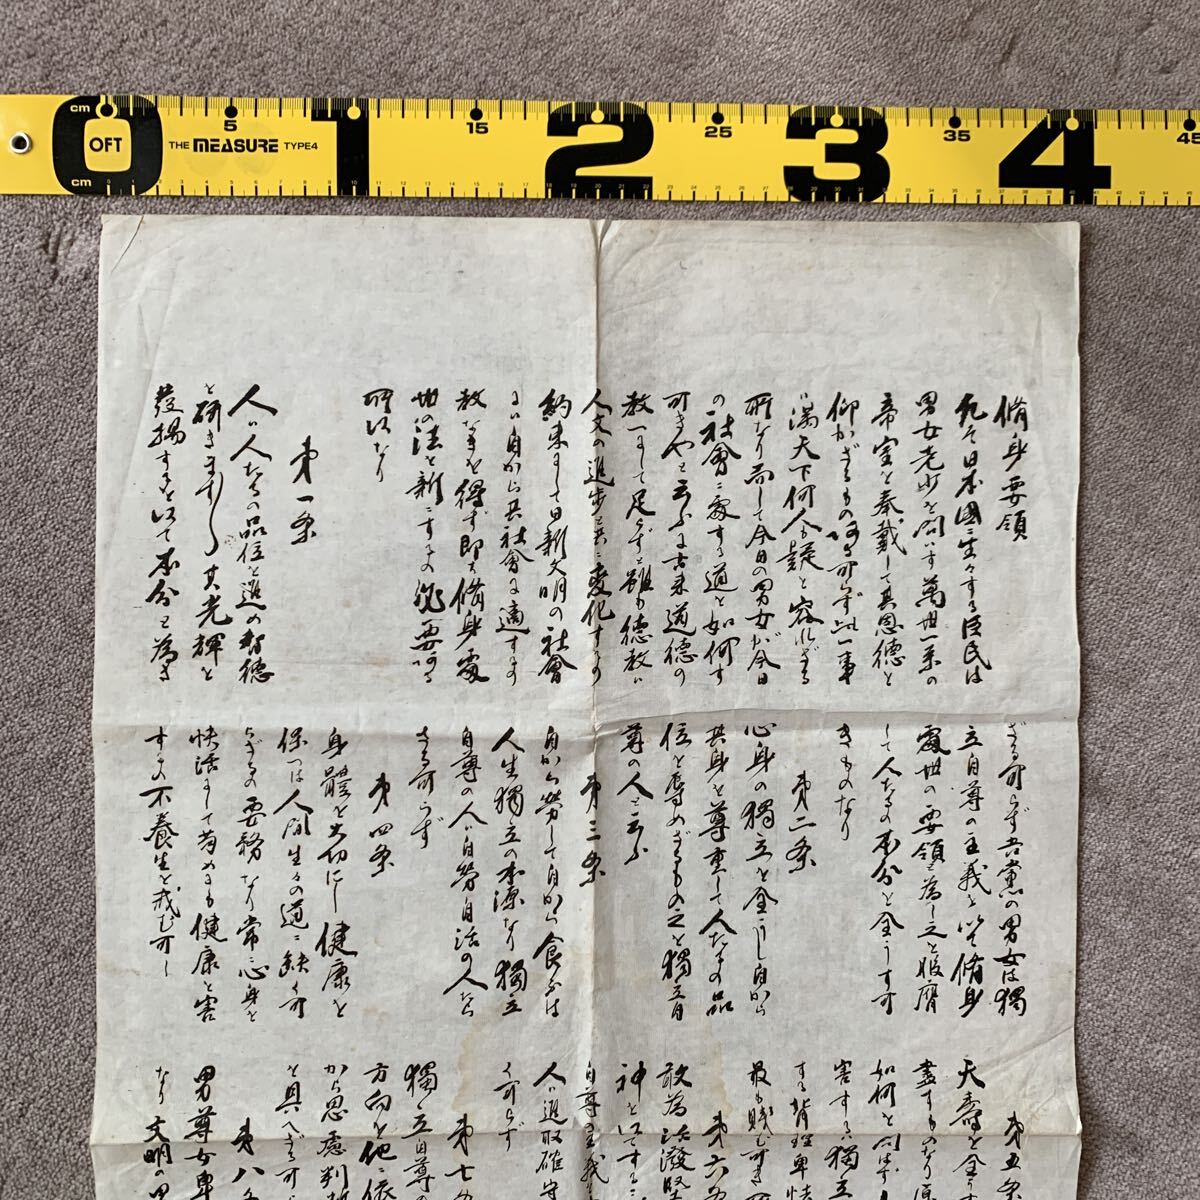 cm 0 5 1 15 2 25 3 35 4 45
0FT THE MEASURE TYPE4
cm
脩身要領
凡そ日本國ニ生々する臣民は
男女老少を問はず萬世一系の
帝室を奉戴して其恩德を
仰がざるものある可らず此一事
は満天下何人も疑を容れざる
所なり而して今日の男女が今日
の社會ニ處する道を如何す
可きやと云ふに古来道德の
教一にして足らずと雖も德教は
人文の進歩と共ニ変化するの
約束にして日新文明の社會
には自から其社會に適するの
教なきを得ず即ち脩身處
世の法を新ニするの必要ある
所以なり
第一条
人は人たるの品位を進め智德
を研きます〱其光輝を
發揚するを以て本分と為さ
ざる可らず吾黨の男女は獨
立自尊の主義を以て脩身
處世の要領と為し之を服膺
して人たるの本分を全うす可
きものなり
第二条
心身の獨立を全うし自から
其身を尊重して人たるの品
位を辱めざるもの之を獨立自
尊の人と云ふ
第三条
自から勞して自から食ふは
人生獨立の本源なり獨立
自尊の人は自勞自活の人なら
ざる可らず
第四条
身體を大切にし健康を
保つは人間生々の道ニ缺く可
らざるの要務なり常に心身を
快活にして苟めにも健康を害
するの不養生を戒む可し
第五条
天壽を全うす
盡すものなり原
如何を問はず
害するは獨立
する背理卑怯
最も賤む可き所
第六条
敢為活潑堅
神を以てするに
自尊の主義
人は進取確守
く可らず
第七条
獨立自尊の
方向を他ニ依
から思慮判
を具へざる可
第八条
男尊女卑
なり文明の男